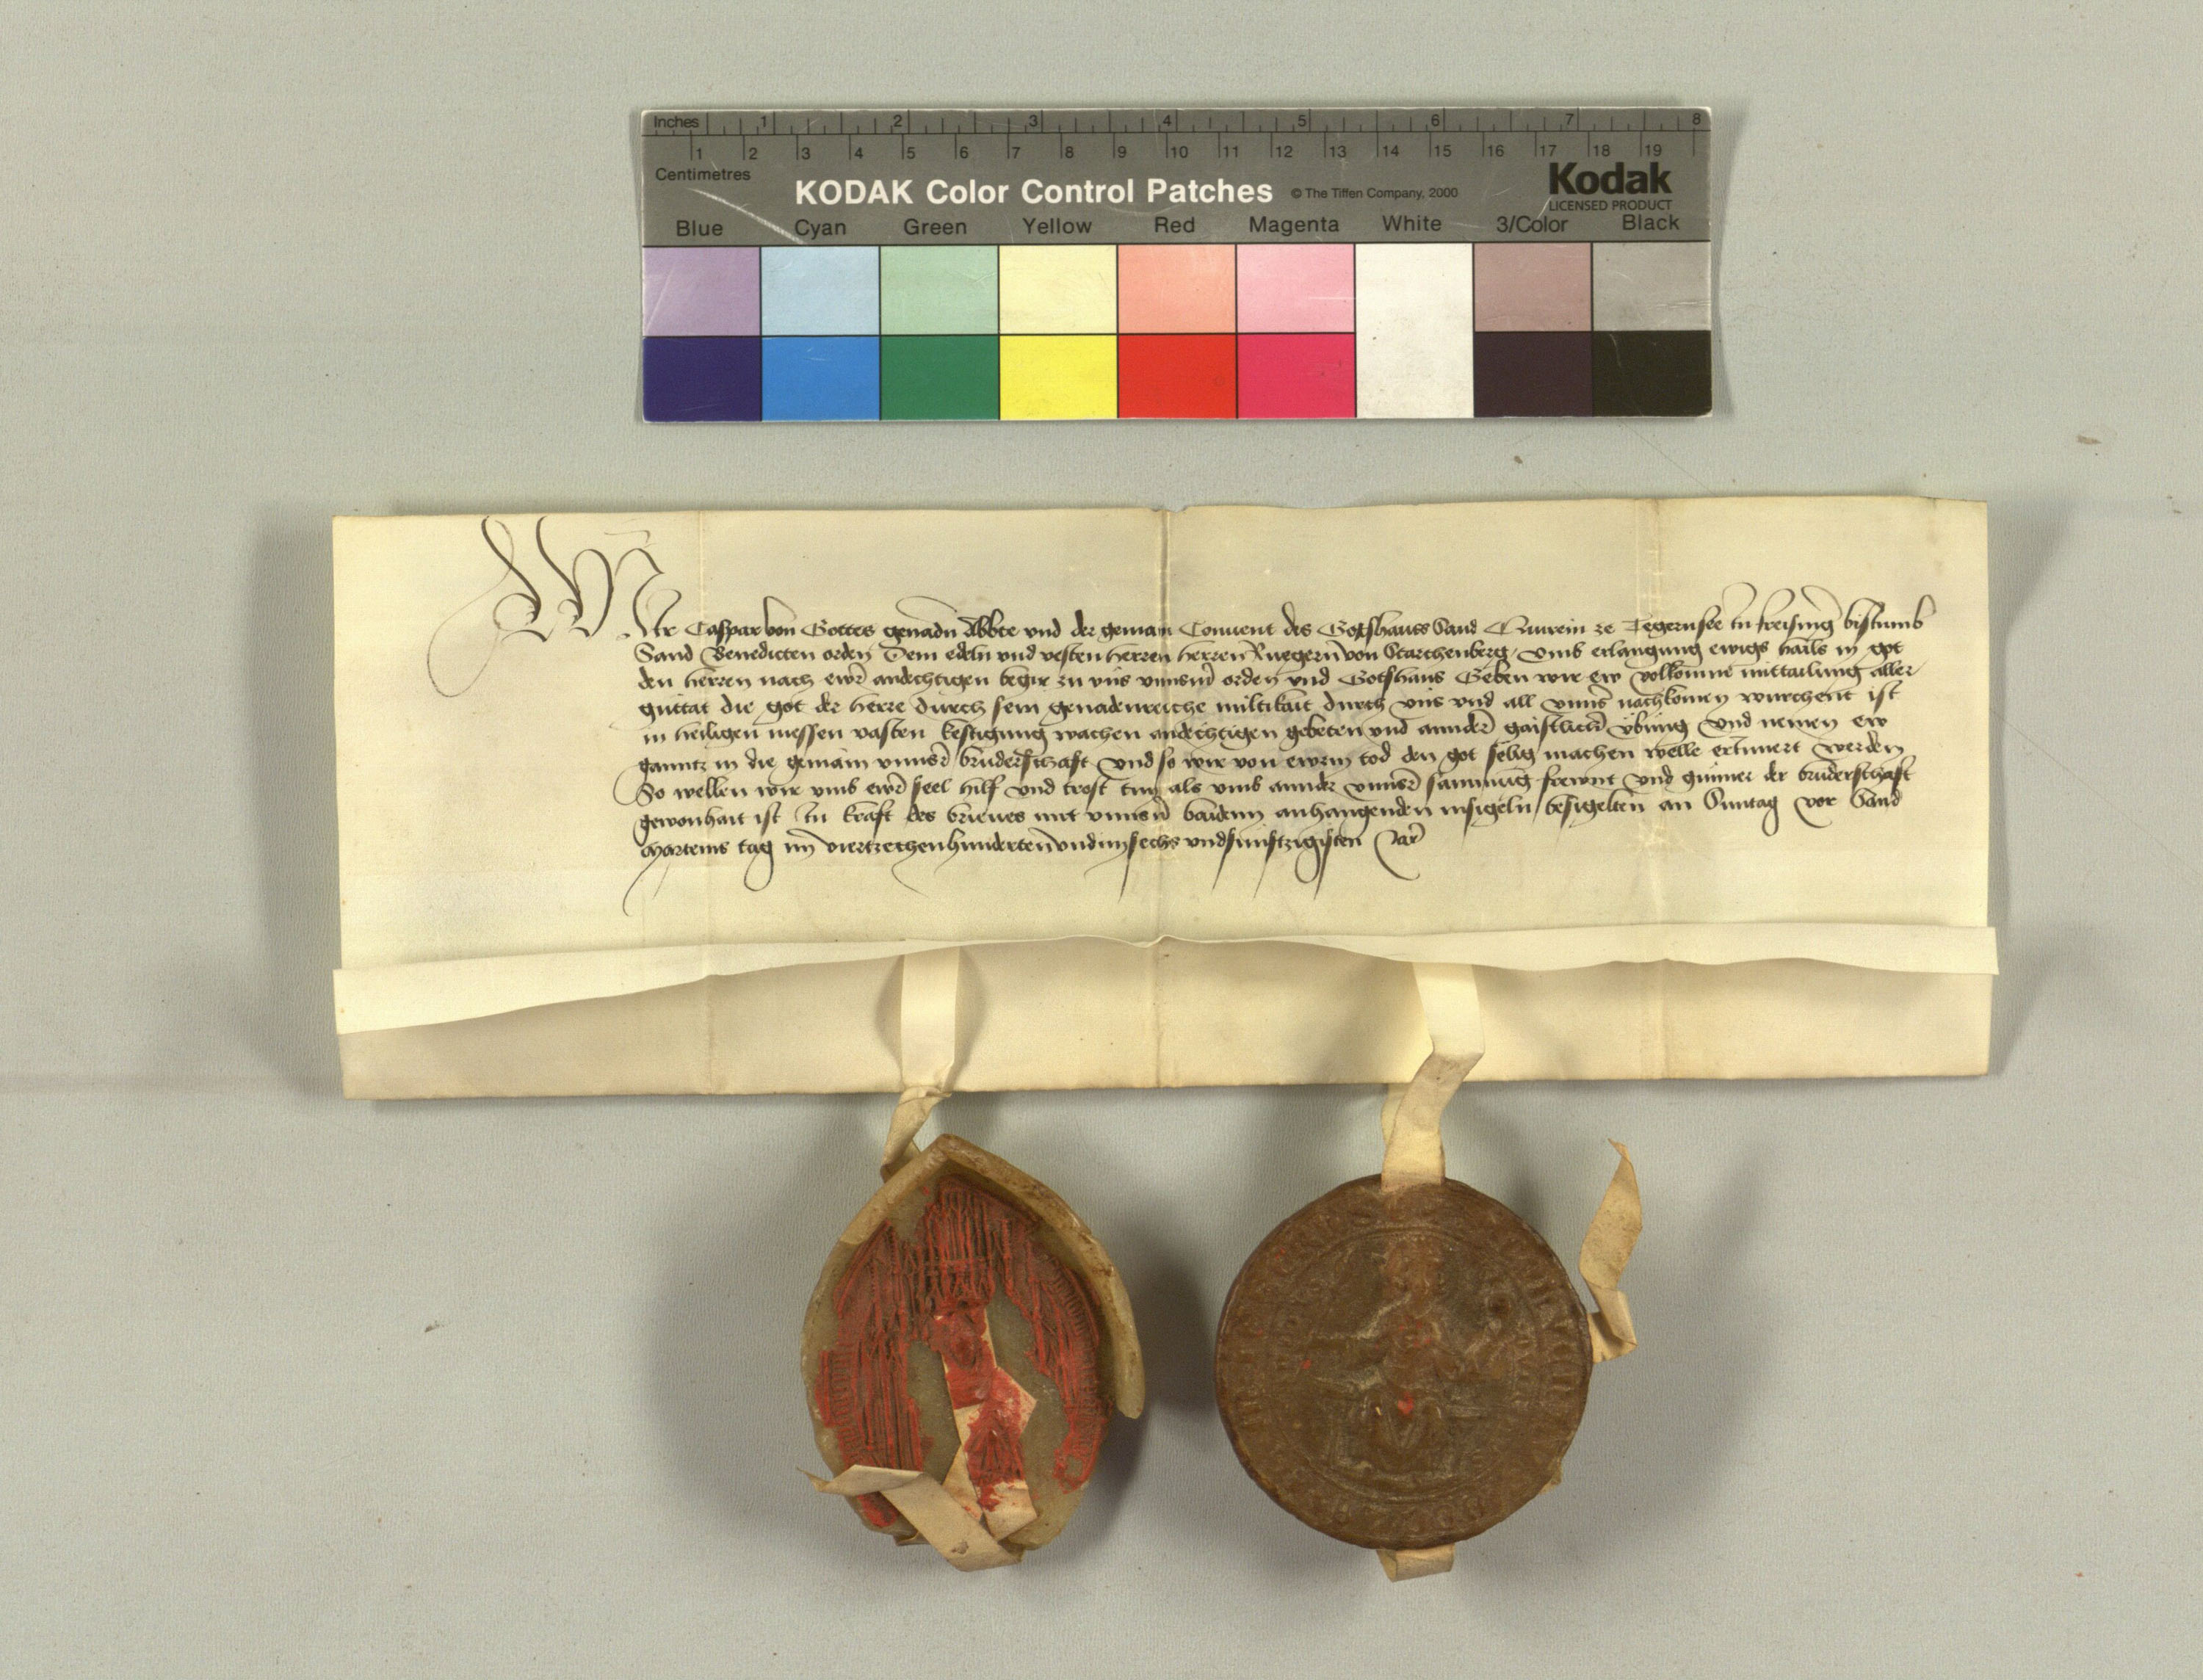 Inches 1 2 3 4 5 6 7 8
1 2 3 4 5 6 7 8 9 10 11 12 13 14 15 16 17 18 19
Centimetres
KODAK Color Control Patches © The Tiffen Company, 2000 Kodak
LICENSED PRODUCT
Blue Cyan Green Yellow Red Magenta White 3/Color Black
Wir Caspar von Gottes genadn Abbte vnd der gemain Conuent des Gotzhauss Sand Quirein ze Tegernsee in freisinger bistumb
Sand Benedicten orden Dem edeln vnd vesten herren herren Ruegern von Starchenberg vmb erlangung ewigs hails in got
den herren nach ewr andechtigen begir zu vns vnnserm orden vnd Gotshaus Geben wir ew volkomne mittailung aller
guttat die got der herre durch sein genadenreiche miltikait durch vns vnd all vnnser nachkomen wurchent ist
in heiligen messen vasten kestigung wachen andechtigen gebeten vnd annder gaistlicher übung Vnd nemen ew
ganntz in die gemain vnnser bruderschaft Vnd so wir von ewrm tod den got selig machen welle erinnert werden
So wellen wir vmb ewr seel hilf vnd trost tun als vmb annder vnnser samnung frewnt vnd gunner der bruderschaft
gewonhait ist In kraft des brieues mit vnnsern baiden anhangenden insigeln besigelten an Suntag vor Sand
Marteins tag im viertzechenhunderten vnd im sechs vndfunftzigisten Jar